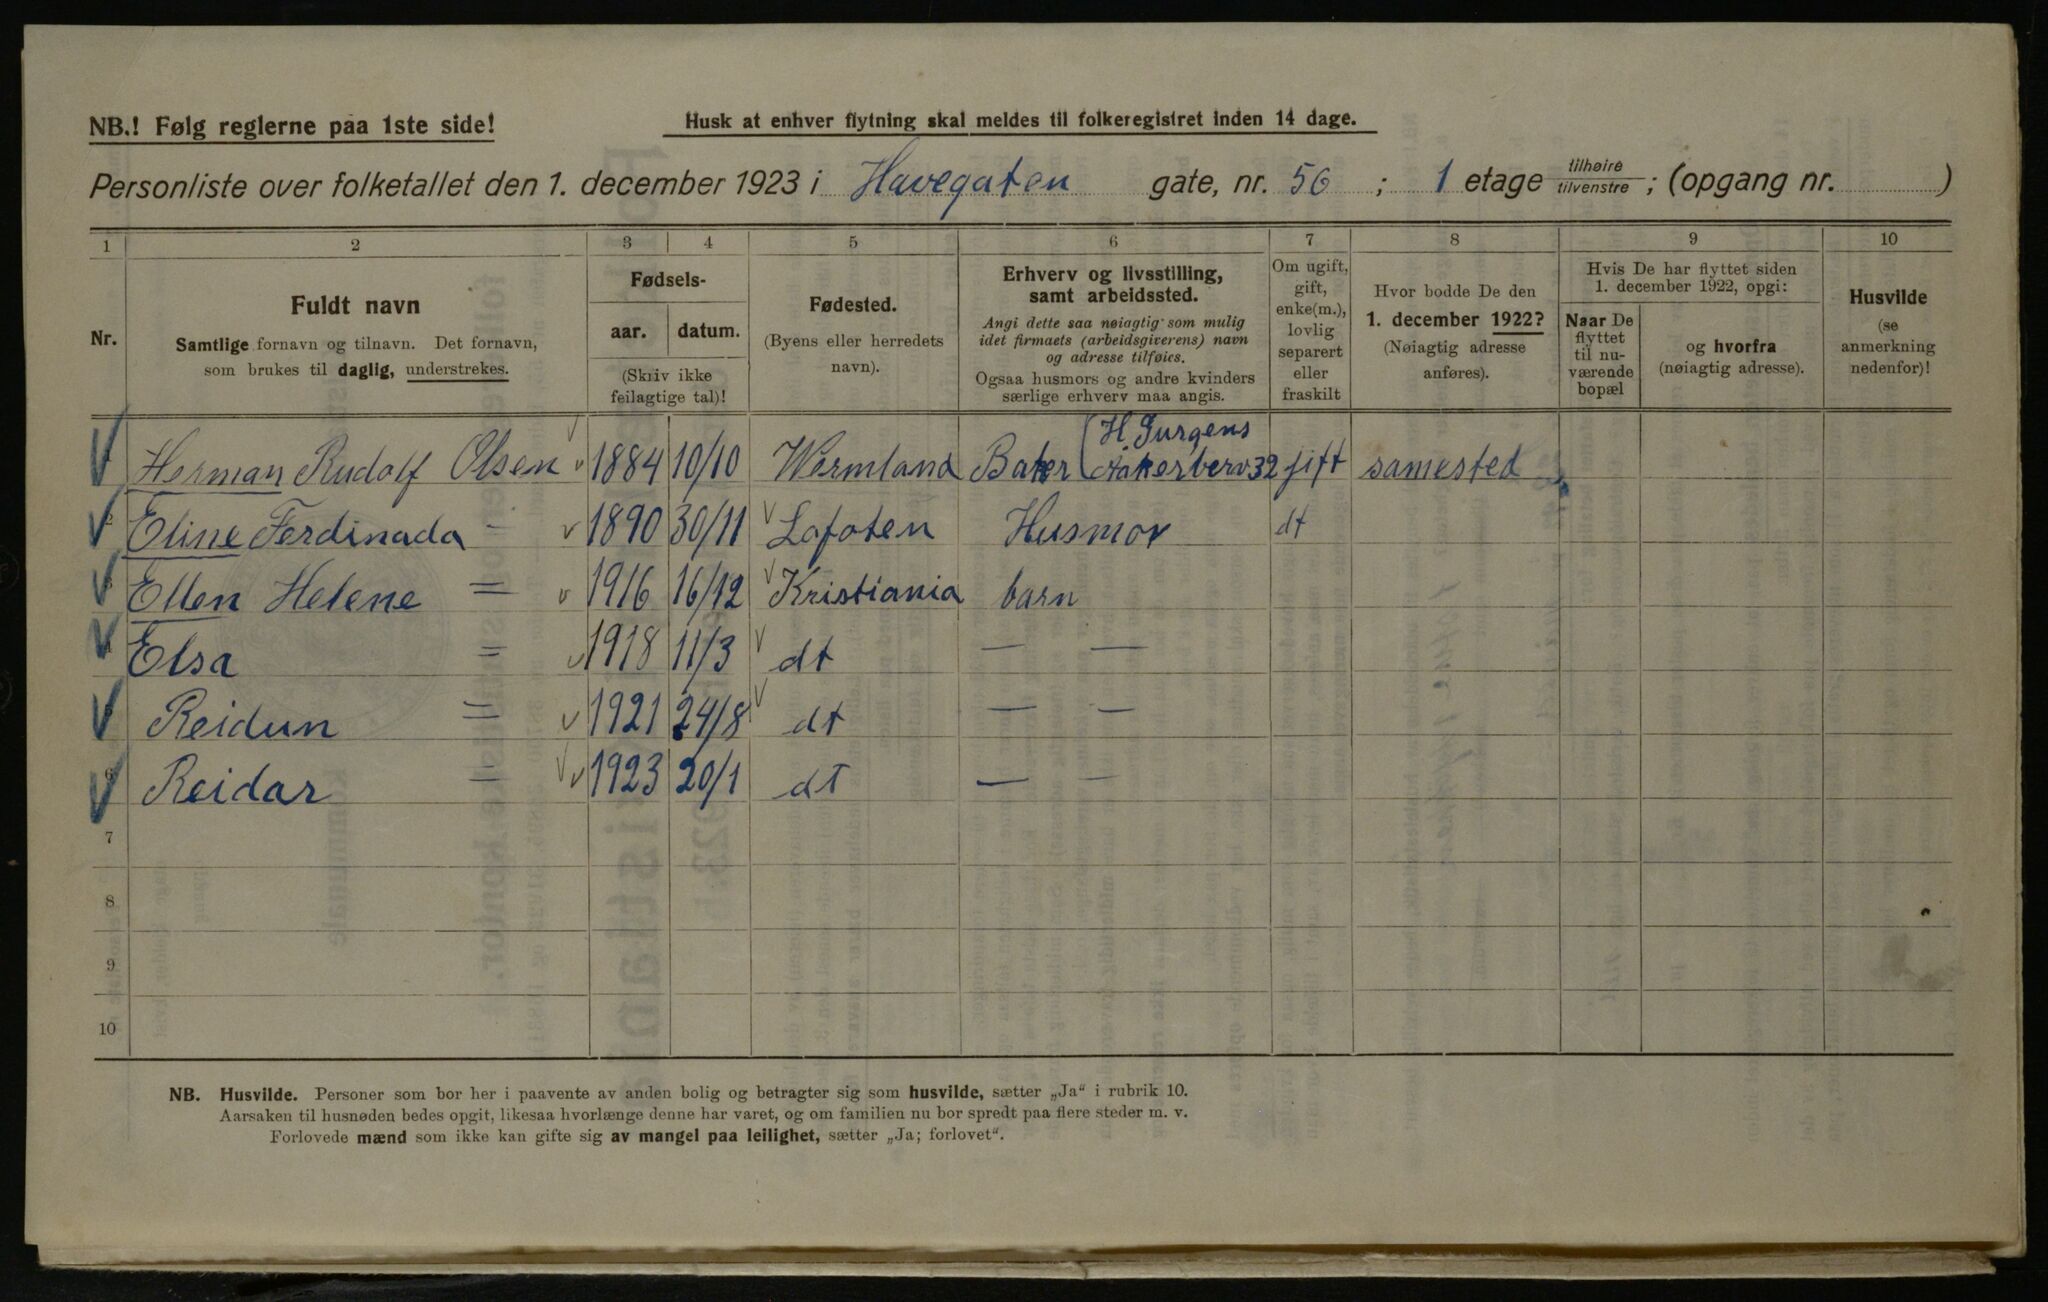 NB.! Følg reglerne paa 1ste side!
Husk at enhver flytning skal meldes til folkeregistret inden 14 dage.
Personliste over folketallet den 1. december 1923 i Havegaten gate, nr. 56 ; 1 etage tilhøire tilvenstre ; (opgang nr. )
1 2 3 4 5 6 7 8 9 10
Nr.
Fuldt navn
Samtlige fornavn og tilnavn. Det fornavn,
som brukes til daglig, understrekes.
Fødsels-
aar. datum.
(Skriv ikke
feilagtige tal)!
Fødested.
(Byens eller herredets
navn).
Erhverv og livsstilling,
samt arbeidssted.
Angi dette saa nøiagtig som mulig
idet firmaets (arbeidsgiverens) navn
og adresse tilføies.
Ogsaa husmors og andre kvinders
særlige erhverv maa angis.
Om ugift,
gift,
enke(m.),
lovlig
separert
eller
fraskilt
Hvor bodde De den
1. december 1922?
(Nøiagtig adresse
anføres).
Hvis De har flyttet siden
1. december 1922, opgi:
Naar De
flyttet
til nu-
værende
bopæl
og hvorfra
(nøiagtig adresse).
Husvilde
(se
anmerkning
nedenfor)!
Herman Rudolf Olsen 1884 10/10 Wermland Baker (H. Jurgens Aakerberv 32 gift samested
2 Eline Ferdinada - 1890 30/11 Lofoten Husmor dt
3 Ellen Helene = 1916 16/12 Kristiania barn
4 Elsa = 1918 11/3 dt — —
Reidun = 1921 24/8 dt — —
6 Reidar = 1923 20/1 dt — —
7
8
9
10
NB. Husvilde. Personer som bor her i paavente av anden bolig og betragter sig som husvilde, sætter „Ja“ i rubrik 10.
Aarsaken til husnøden bedes opgit, likesaa hvorlænge denne har varet, og om familien nu bor spredt paa flere steder m. v.
Forlovede mænd som ikke kan gifte sig av mangel paa leilighet, sætter „Ja; forlovet“.